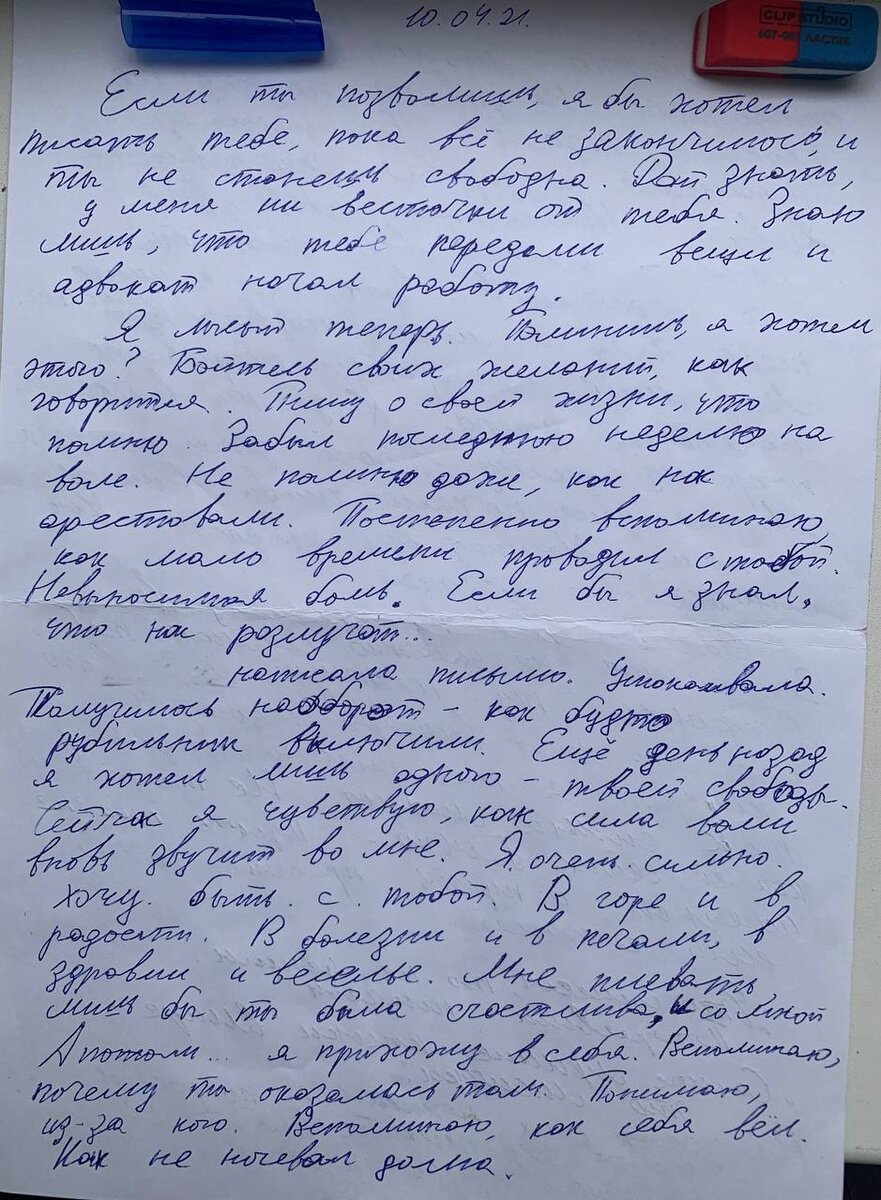 10.04.21.
CLIP STUDIO
607-001 ЛАСТИК
Если ты позволишь, я бы хотел
писать тебе, пока всё не закончилось, и
ты не станешь свободна. Дай знать,
у меня ни весточки от тебя. Знаю
лишь, что тебе передали вещи и
адвокат начал работу.
Я лысый теперь. Помнишь, я хотел
этого? Бойтесь своих желаний, как
говорится. Пишу о своей жизни, что
помню. Забыл последнюю неделю на
воле. Не помню даже, как нас
арестовали. Постепенно вспоминаю,
как мало времени проводил с тобой.
Невыносимая боль. Если бы я знал,
что нас разлучат...
написала письмо. Успокаивала.
Получилось наоборот – как будто
рубильник включили. Ещё день назад
я хотел лишь одного – твоей свободы.
Сейчас я чувствую, как сила воли
вновь звучит во мне. Я. очень. сильно.
хочу. быть. с. тобой. В горе и в
радости. В болезни и в печали, в
здравии и веселье. Мне плевать
лишь бы ты была счастлива, и со мной
А потом... я прихожу в себя. Вспоминаю,
почему ты оказалась там. Понимаю,
из-за кого. Вспоминаю, как себя вёл.
Как не ночевал дома.